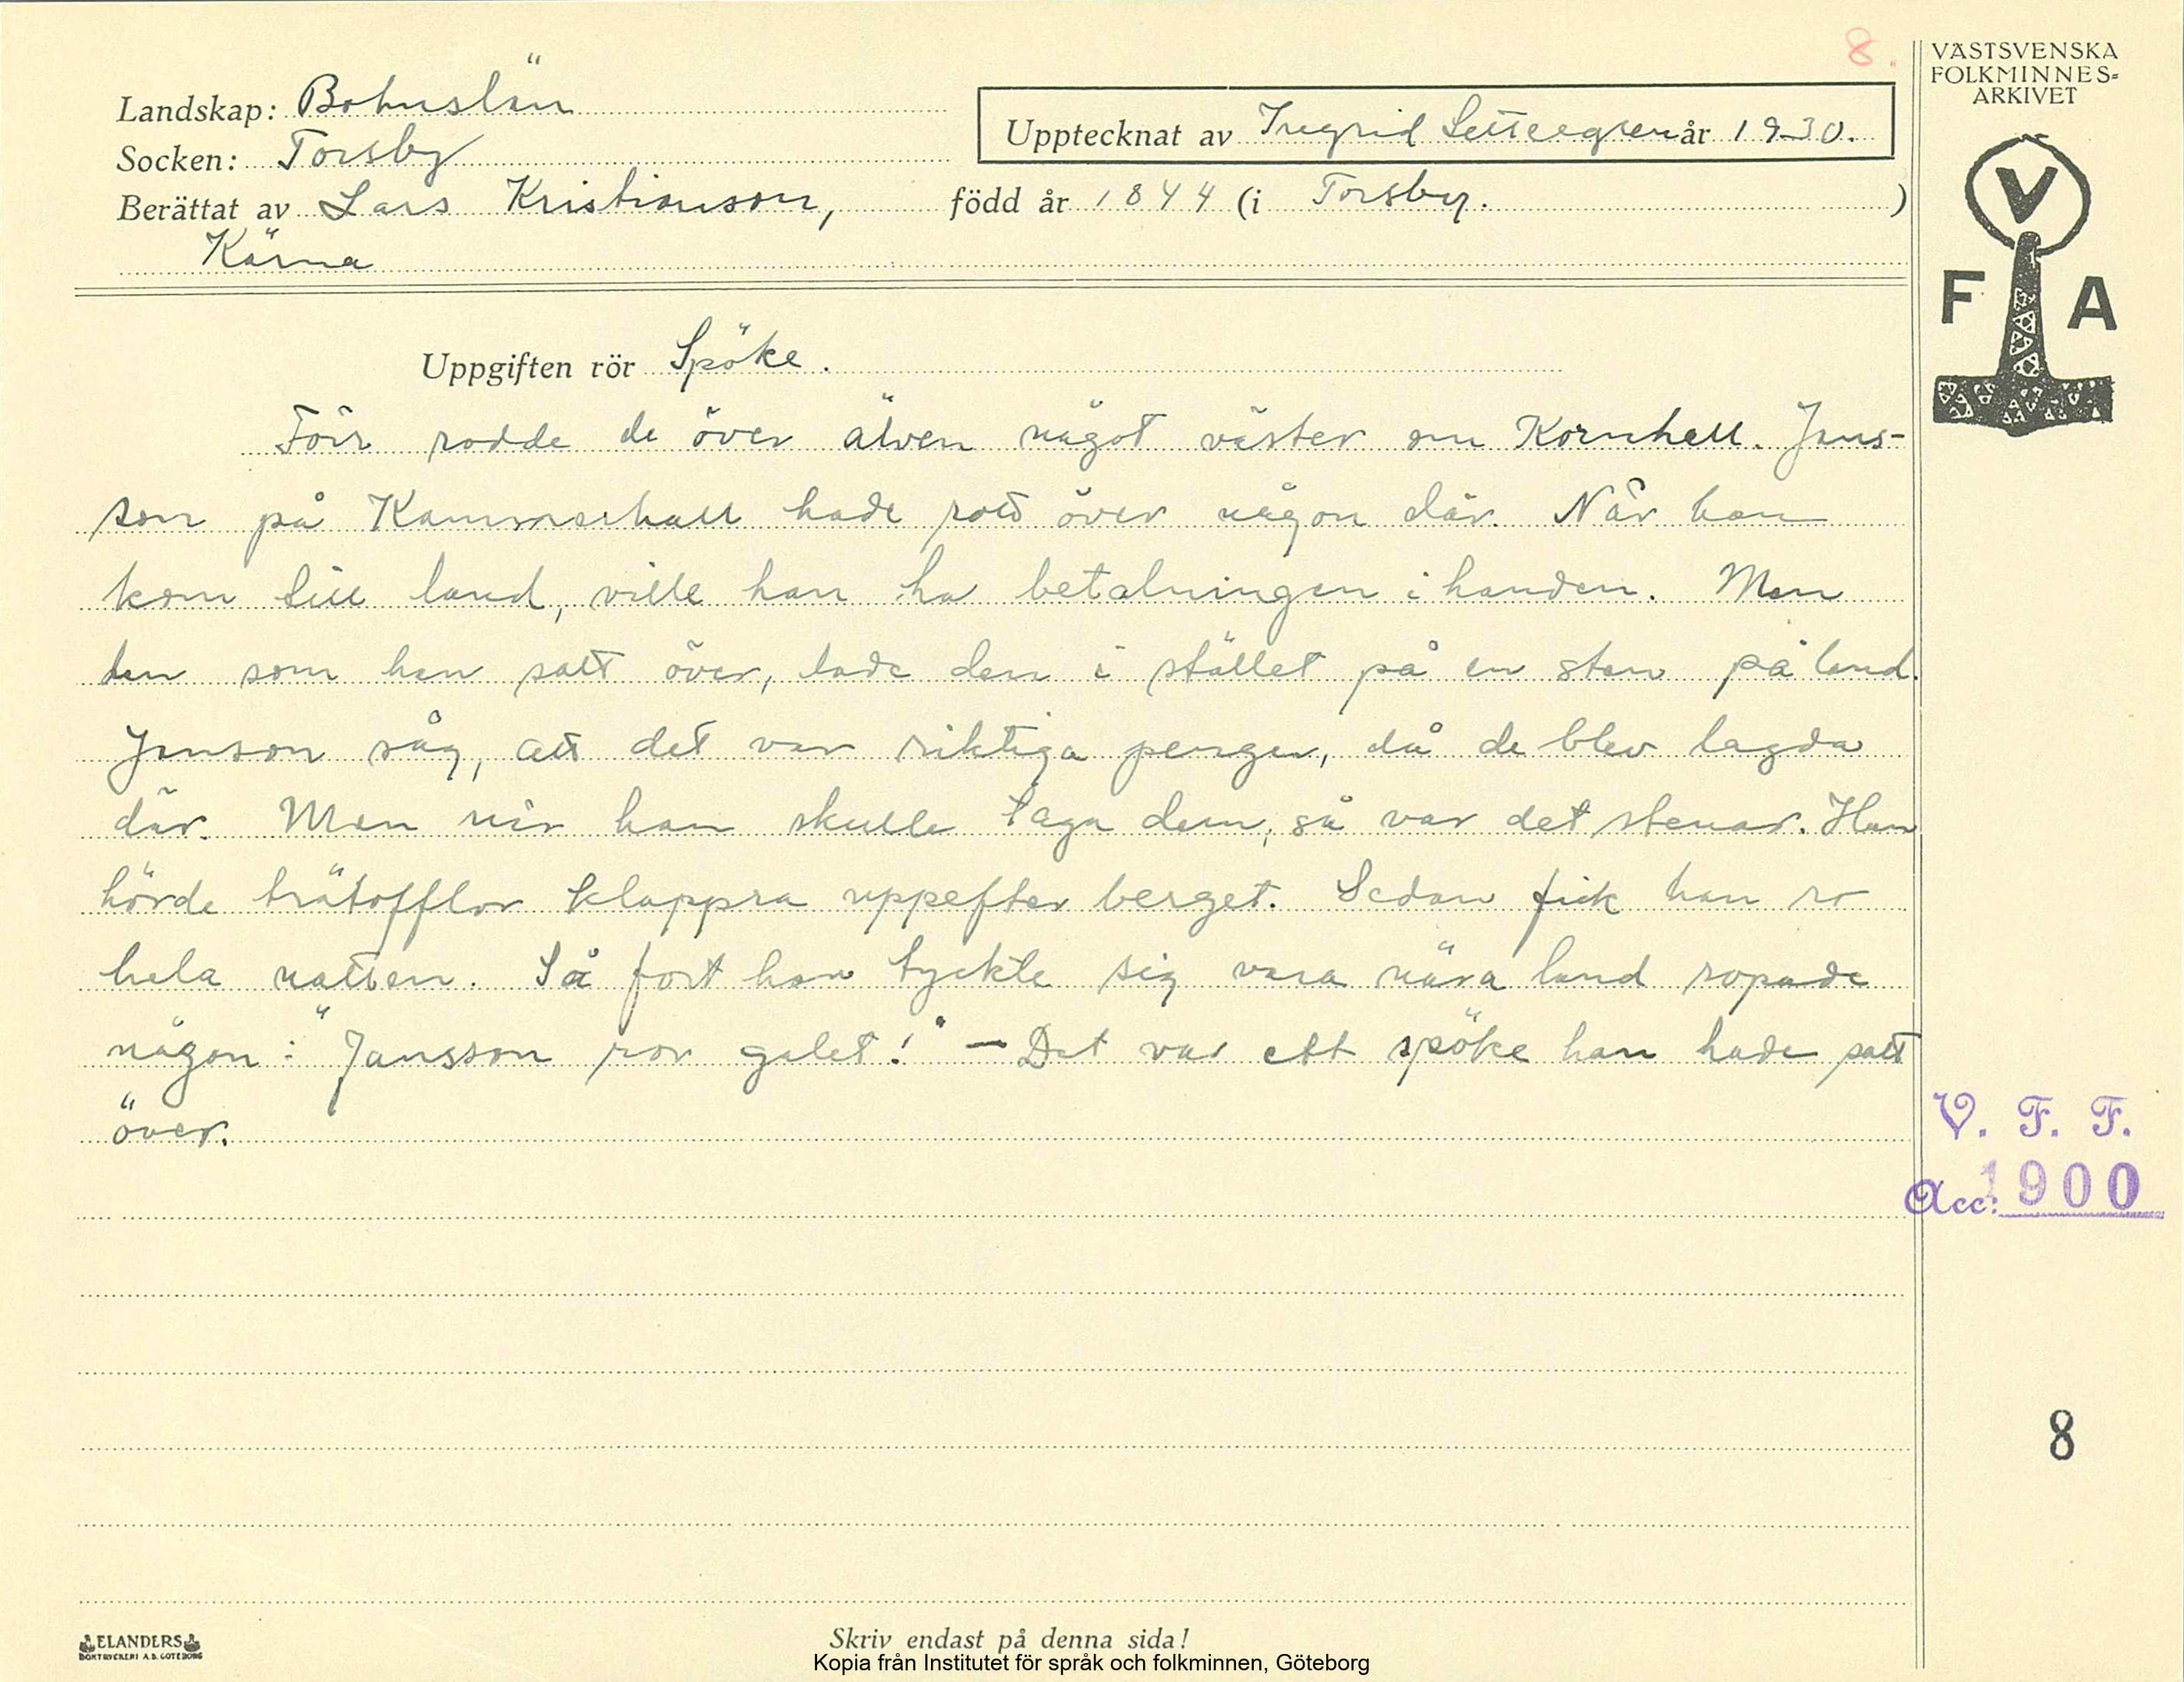 8.
VÄSTSVENSKA
FOLKMINNES-
ARKIVET
Landskap: Bohuslän
Upptecknat av Ingrid Settergren år 1930.
Socken: Torsby
Berättat av Lars Kristianson, född år 1844 (i Torsby. )
Kärna
V
F A
Uppgiften rör Spöke.
Förr rodde de över älven något väster om Kornhall. Jans-
son på Kammerhall hade rott över någon där. När han
kom till land, ville han ha betalningen i handen. Men
den som han satt över, lade den i stället på en sten på land.
Janson såg, att det var riktiga pengar, då de blev lagda
där. Men när han skulle taga dem, så var det stenar. Han
hörde trätofflor klappra uppefter berget. Sedan fick han ro
hela natten. Så fort han tyckte sig vara nära land ropade
någon: "Jansson ror galet!" — Det var ett spöke han hade satt
över.
V. F. F.
Acc: 1900
8
ELANDERS
BOKTRYCKERI A.B. GÖTEBORG
Skriv endast på denna sida!
Kopia från Institutet för språk och folkminnen, Göteborg